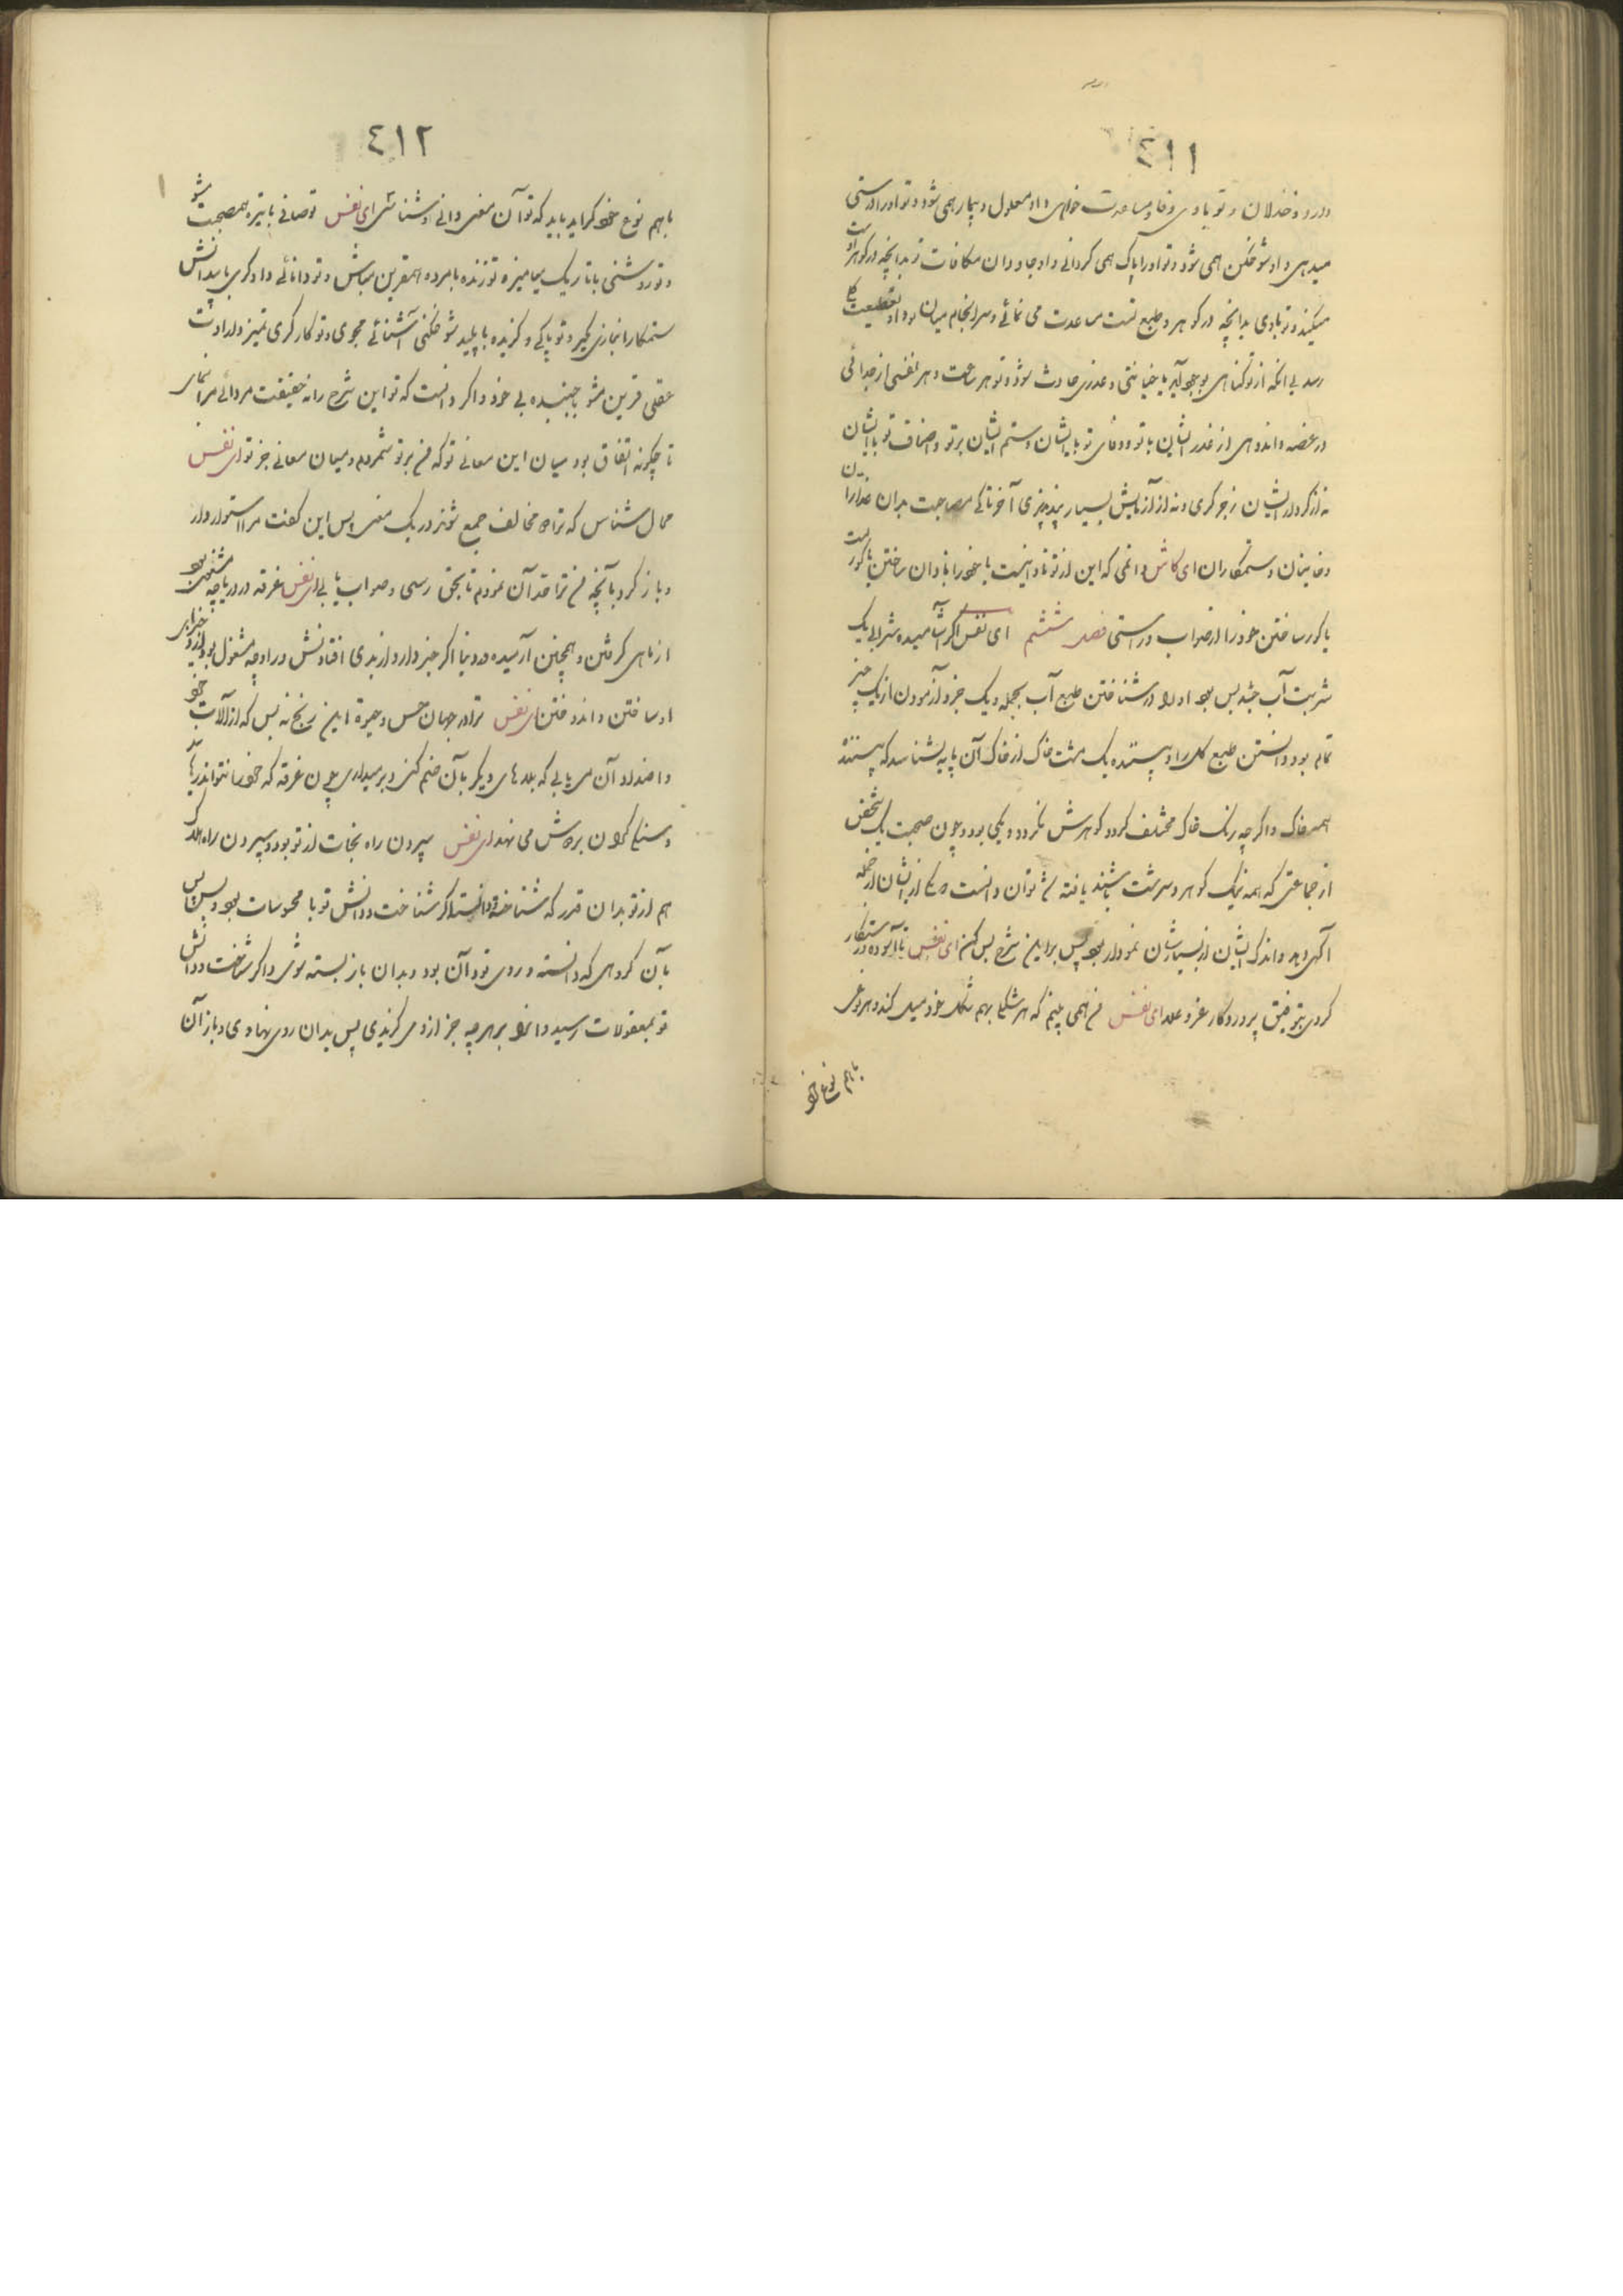 ٤١١
و درد و خذلان و تو با وی وفا و مساعدت خواهی و او معلول و بیمار همی شود و تو او را درستی
میدهی و او شوخگن همی شود و تو او را پاک همی گردانی و او جاودان مکافات تو بدانچه در گوهر اوست
میکند و تو با وی بدانچه در گوهر و طبع تست مساعدت می نمائی و سرانجام میان تو و او قطیعت
رسد بی آنکه از تو گناهی بوجود آید یا خیانتی و غدری حادث شود و تو هر ساعت و هر نفسی از جدائی
در غصه و اندوهی از غدر ایشان با تو و وفای تو با ایشان و ستم ایشان بر تو و انصاف تو با ایشان
نه از کردار ایشان زجر گری و نه از آزمایش بسیار پند پذیری آخر تا کی مصاحبت بدان غداران
و خاینان و ستمکاران ای کاش دانمی که این از تو نادانیست یا خود را نادان ساختن یا کوریست
یا کور ساختن خود را از صواب و راستی فصل ششم ای نفس اگر آشامیده شرابی یک
شربت آب چشد بس بود او را در شناختن طبع آب بجمله و یک جزو آزمودن از یک چیز
تمام بود دانستن طبع کل را و بیننده یک مشت خاک از خاک آن پایه بشناسد که بیننده
همه خاک و اگر چه رنگ خاک مختلف گردد گوهرش نگردد و یکی بود و چون صحبت یک شخص
از جماعتی که همه نیک گوهر و سرشت باشند یافته شد توان دانست که از ایشان از جمله
آگهی دهد و اندک ایشان از بسیارشان نمودار بود پس بر این شرح بس کن ای نفس تا آسوده و رستگار
گردی بتوفیق پروردگار عز و علا ای نفس من همی بینم که هر شکلی بهم شکل خود میل کند و هر نوعی
با هم نوع خود
٤١٢
با هم نوع خود گراید باید که تو آن معنی دانی و شناسی ای نفس تو صافی با تیره همصحبت مشو
و تو روشنی با تاریک میامیز و تو زنده با مرده همقرین مباش و تو دانائی و دادگری با بیدانش
ستمکار انبازی مگیر و تو پاکی و گزیده با پلید شوخگنی آشنائی مجوی و تو کارگری تمیز و ارادت
عقلی قرین مشو با جنبیده بی خرد و اگر دانست که تو این شرح را نه حقیقت مردانی مرا نمای
تا چگونه اتفاق بود میان این معانی تو که من بر تو شمردم و میان معانی جز تو ای نفس
محال شناس که ترا و مخالف جمع شوند در یک معنی پس این گفت مرا استوار دار
و باز گرد بآنچه من ترا قد آن نمودم تا بحق رسی و صواب یابی ای نفس غرقه در دریا چه مشغول بود
از ماهی گرفتن و همچنین آرمیده در دنیا اگر خبر دارد از بدی افتادنش در او چه مشغول بود
او ساختن و اندوختن ای نفس ترا در جهان حس و حیوة این رنج نه بس که از آلات خود
و اضداد آن می یابی که بلاهای دیگر بآن ضم کنی و بر میداری چون غرقه که خود را نتواند رهاند
و سنگ گران بر دوش می نهد ای نفس سپردن راه نجات از تو بود و سپردن راه هلاک
هم از تو بدان قدر که شناخته و دانسته اگر شناخت و دانش تو با محسوسات بود و بس پس
بآن گروهی که دانسته و روی تو و آن بود و بدان باز بسته شوی و اگر شناخت و دانش
تو بمعقولات رسید و آنرا بر هر چه جز از وی گزیدی پس بدان روی نهادی و باز آن